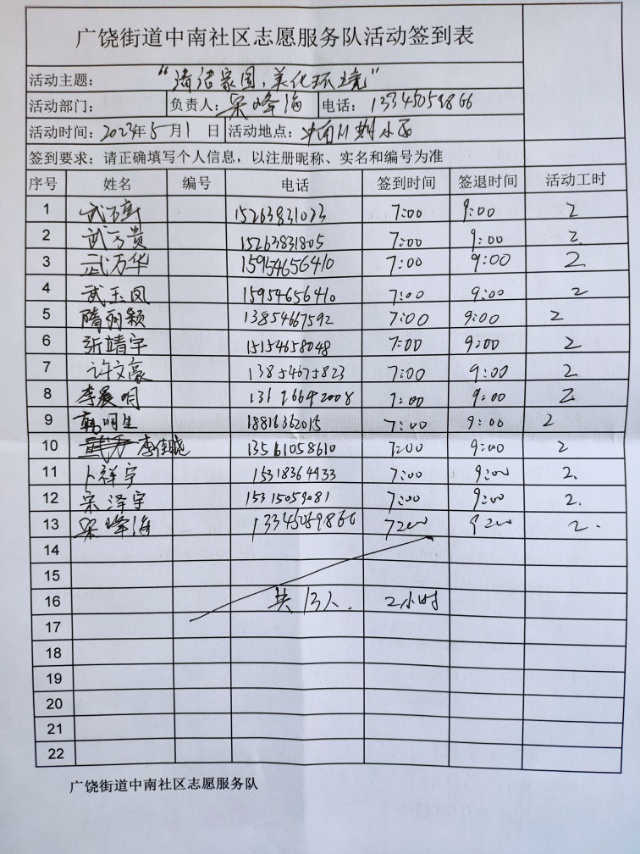 广饶街道中南社区志愿服务队活动签到表
活动主题： “清洁家园，美化环境”
活动部门： 负责人：宋峰海 电话：13345059866
活动时间：2023年5月1日 活动地点：小区
签到要求：请正确填写个人信息，以注册昵称、实名和编号为准
序号 姓名 编号 电话 签到时间 签退时间 活动工时
1 武万 15263831023 7:00 9:00 2
2 武万贵 15263831805 7:00 9:00 2
3 武万华 15954656410 7:00 9:00 2
4 武玉凤 15954656410 7:00 9:00 2
5 隋丽颖 13854667592 7:00 9:00 2
6 靖宇 15154658048 7:00 9:00 2
7 许文豪 13854675823 7:00 9:00 2
8 李晨明 7:00 9:00 2
9 韩明生 18816362015 7:00 9:00 2
10 李佳晓 13561058610 7:00 9:00 2
11 卜祥宇 15318364933 7:00 9:00 2.
12 宋泽宇 15315059081 7:00 9:00 2.
13 宋峰海 13345059866 7:00 9:00 2.
14
15
16 共13人. 2小时
17
18
19
20
21
22
广饶街道中南社区志愿服务队